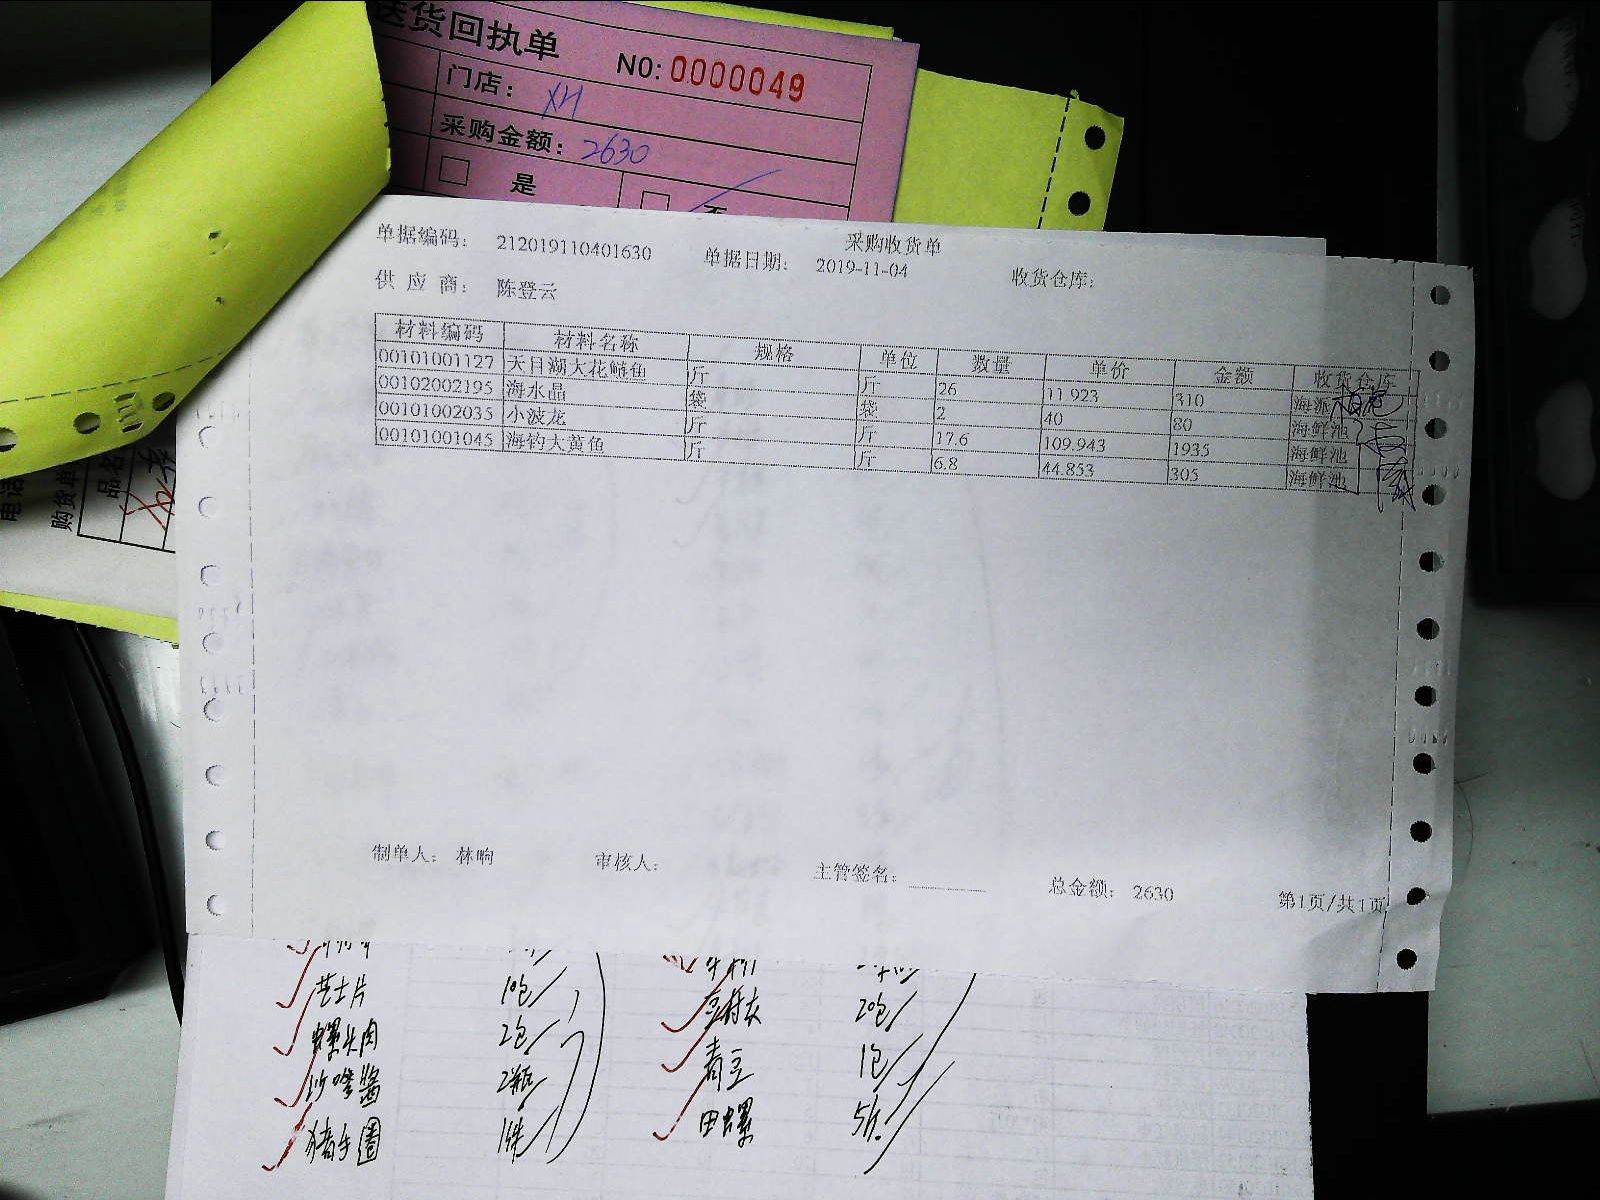 送货回执单 NO:0000049
门店： XH
采购金额： 2630
是
采购收货单
单据编码： 212019110401630 单据日期： 2019-11-04 收货仓库：
供应商： 陈登云
材料编码 材料名称 规格 单位 数量 单价 金额 收货仓库
00101001127 天目湖大花鲢鱼 斤 斤 26 11.923 310 海派
00102002195 海水晶 袋 袋 2 40 80 海鲜池
00101002035 小波龙 斤 斤 17.6 109.943 1935 海鲜池
00101001045 海钓大黄鱼 斤 斤 6.8 44.853 305 海鲜池
制单人： 林响 审核人： 主管签名： 总金额： 2630 第1页/共1页
电话
购货单
品名
芝士片 10包 20包
螺头肉 2包 青豆 1包
沙嗲酱 2瓶 田螺 5斤